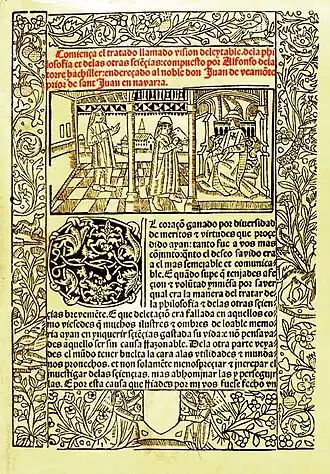 Comiença el tratado llamado vision deleytable. dela phi
losofia et delas otras sciēçias: compuesto por Alfonso dela
torre bachiller: endereçado al noble don Juan de veamōte
prior de sant Juan en navarra.
L coraçō ganado por diuersidad
de meritos τ virtudes que proçe
dido ayan: tanto fue a vos mas
el desseo fauido era
a el mas semeiable et comunica
ble. E quādo supe q̄ teniades afec
ion τ volūtad saver
qual era la manera del tratar de
la philosofia τ delas otras scien
çias brevemēte. Que deletaçiō era fallada en aquellos co
mo veyesedes q̄ muchos ilustres τ ombres de loable memo
ria ayan en ynquerir sciēçias gastado su vida: τ no pensa
vades aquello ser sin causa Rasonable. Dela otra parte veya
des el mūdo tener buelta la cara alas vtilidades τ munda
nos provechos. et non solamēte menospreçiar τ increpar el
investigar delas sciençias. mas abhominar las y perseguir
las. E por esta causa que por my vos fuese fecho vn